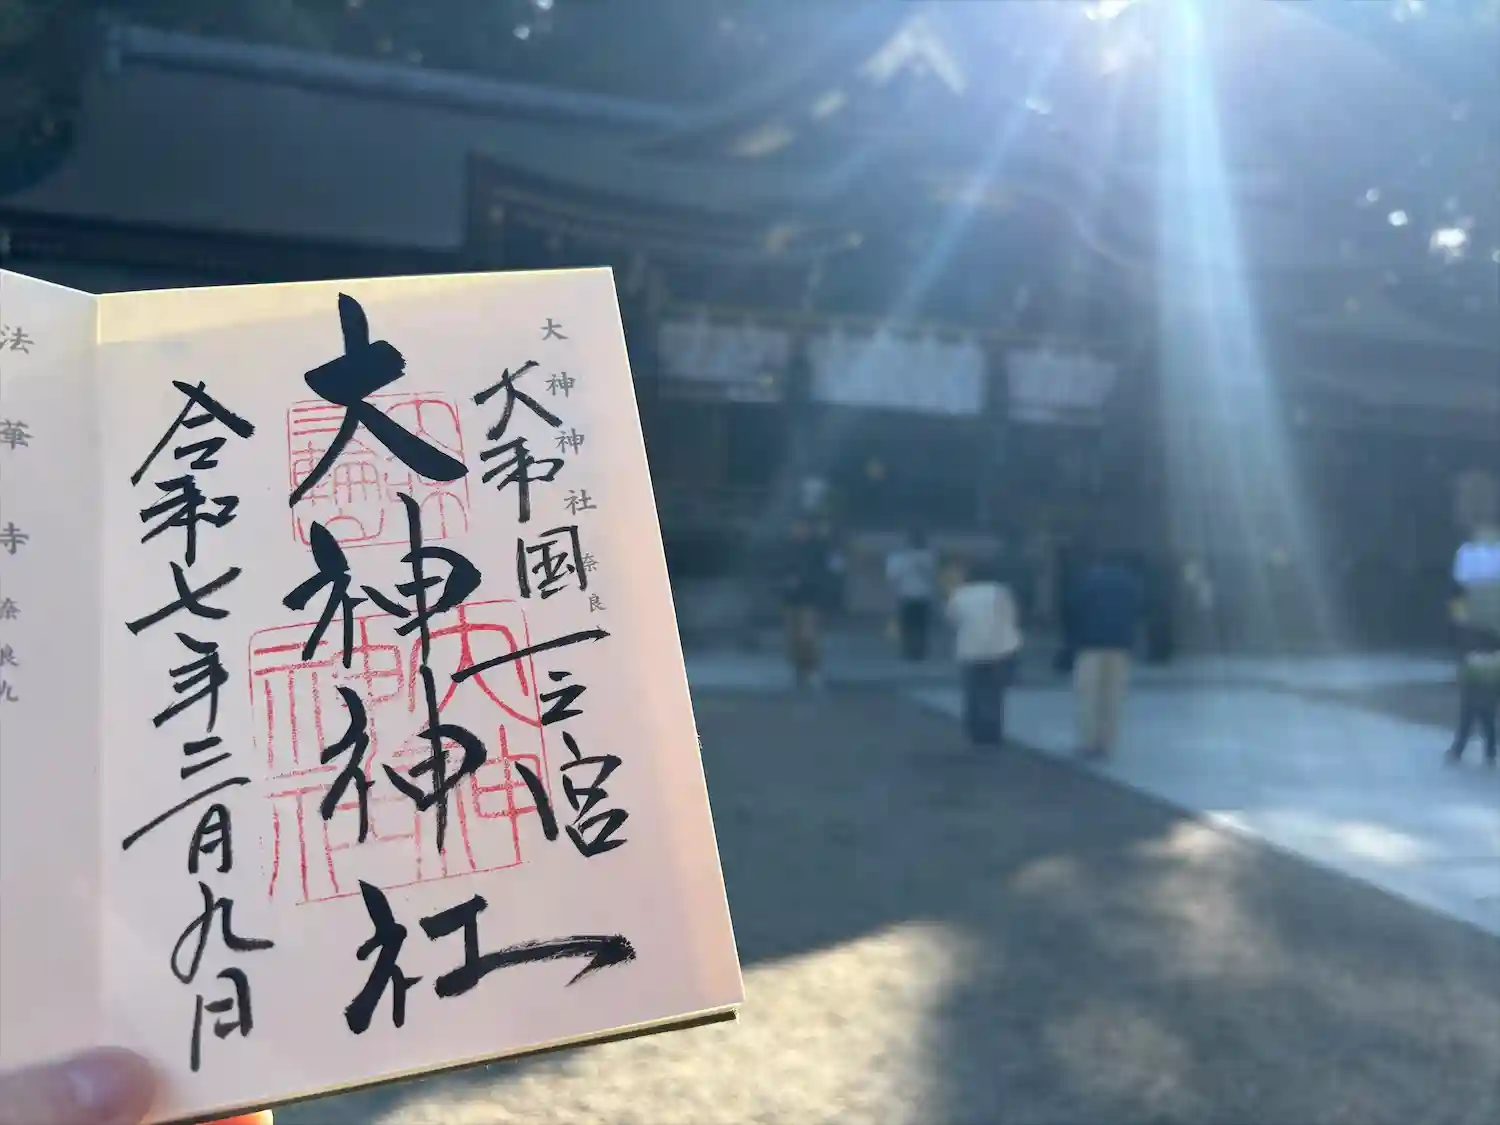 大神神社 奈良
大和国一之宮
大神神社
三輪山
大神神社
令和七年三月九日
法華寺 奈良九